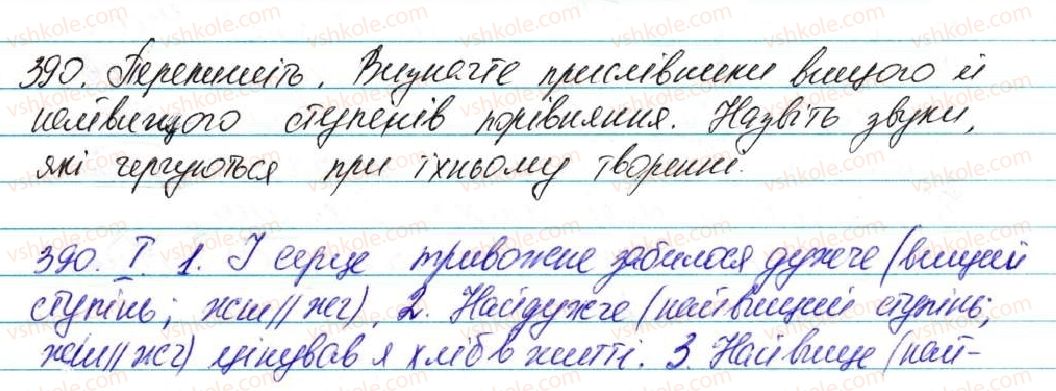 390. Перепишіть. Визначте прислівники вищого й
найвищого ступенів порівняння. Назвіть звуки,
які чергуються при їхньому творенні.
390. I. 1. І серце тривожне забилося дужче (вищий
ступінь; жш//жч). 2. Найдужче (найвищий ступінь;
жш//жч) цінував я хліб в житті. 3. Найвище (най-